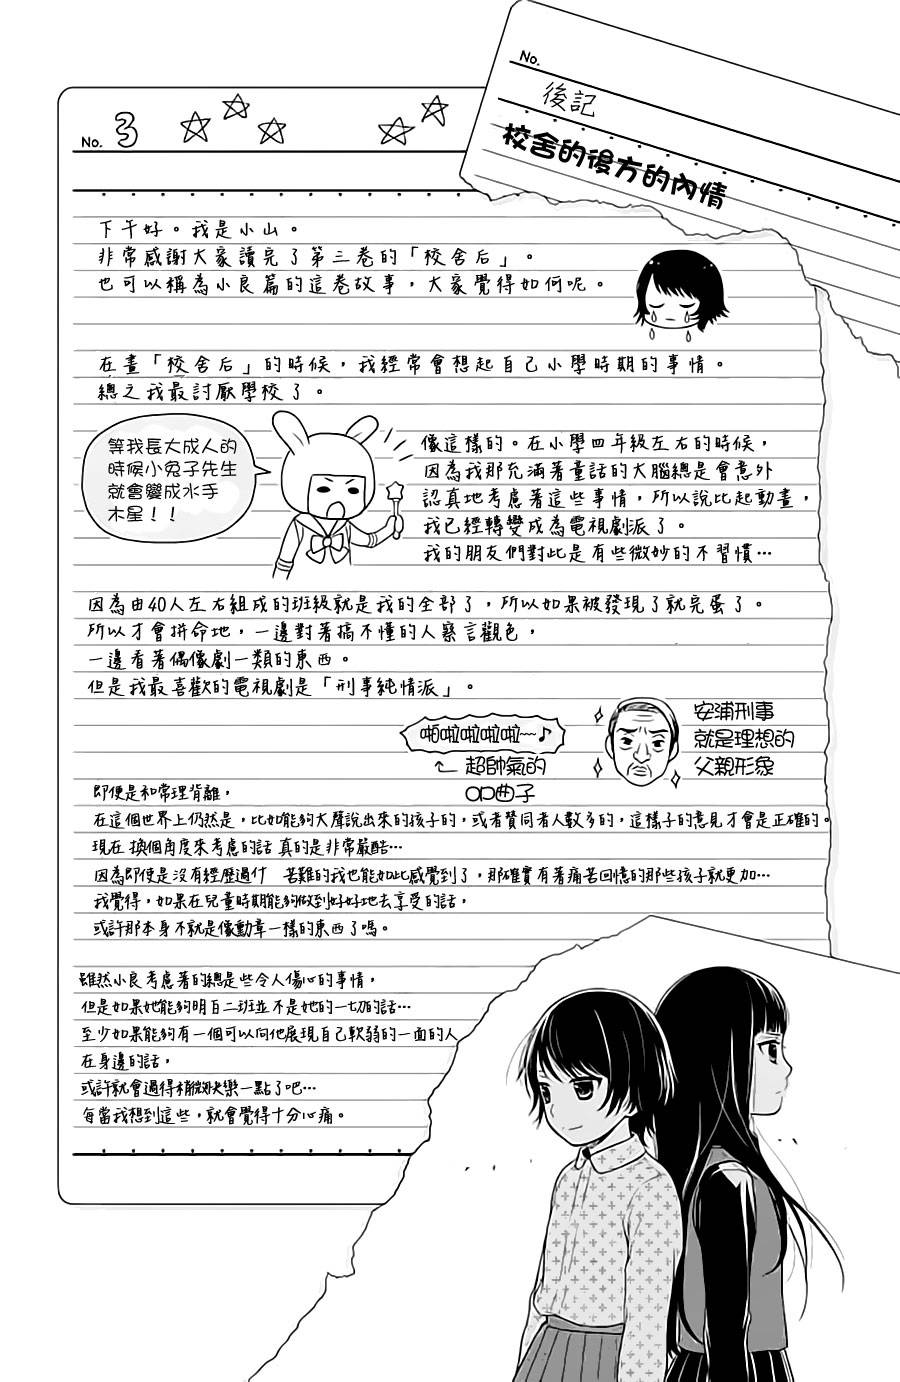 No.
後記
校舍的後方的內情
No. 3
下午好。我是小山。
非常感謝大家讀完了第三卷的「校舍后」。
也可以稱為小良篇的這卷故事，大家覺得如何呢。
在畫「校舍后」的時候，我經常會想起自己小學時期的事情。
總之我最討厭學校了。
等我長大成人的
時候小兔子先生
就會變成水手
木星！！
像這樣的。在小學四年級左右的時候，
因為我那充滿著童話的大腦總是會意外
認真地考慮著這些事情，所以說比起動畫，
我已經轉變成為電視劇派了。
我的朋友們對此是有些微妙的不習慣…
因為由40人左右組成的班級就是我的全部了，所以如果被發現了就完蛋了。
所以才會拼命地，一邊對著搞不懂的人察言觀色，
一邊看著偶像劇一類的東西。
但是我最喜歡的電視劇是「刑事純情派」。
啪啦啦啦啦~♪
超帥氣的
OP曲子
安浦刑事
就是理想的
父親形象
即便是和常理背離，
在這個世界上仍然是，比如能夠大聲說出來的孩子的，或者贊同者人數多的，這樣子的意見才會是正確的。
現在 換個角度來考慮的話 真的是非常嚴酷…
因為即便是沒有經歷過什 苦難的我也能如此感覺到了，那確實有著痛苦回憶的那些孩子就更加…
我覺得，如果在兒童時期能夠做到好好地去享受的話，
或許那本身不就是像勳章一樣的東西了嗎。
雖然小良考慮著的總是些令人傷心的事情，
但是如果她能夠明白二班並不是她的一切的話…
至少如果能夠有一個可以向他展現自己軟弱的一面的人
在身邊的話，
或許就會過得稍微快樂一點了吧…
每當我想到這些，就會覺得十分心痛。